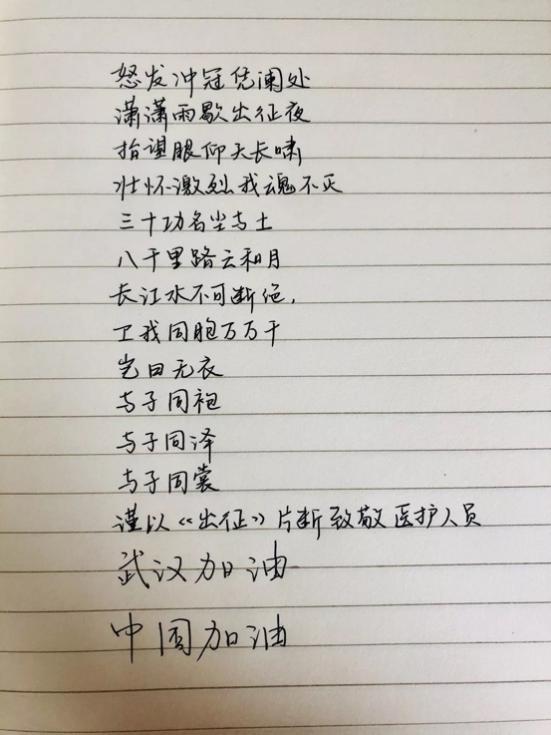 怒发冲冠凭阑处
潇潇雨歇出征夜
抬望眼仰天长啸
壮怀激烈我魂不灭
三十功名尘与土
八千里路云和月
长江水不可断绝，
卫我同胞万万千
岂曰无衣
与子同袍
与子同泽
与子同裳
谨以《出征》片断致敬医护人员
武汉加油
中国加油